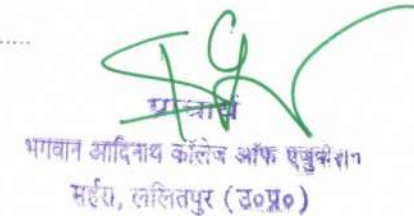 .....
प्राचार्य
भगवान आदिनाथ कॉलेज ऑफ एजुकेशन
महर्रा, ललितपुर (उ०प्र०)